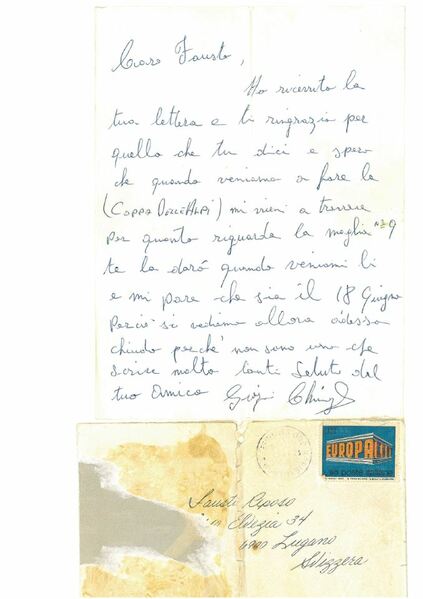 Caro Fausto,
Ho ricevuto la
tua lettera e ti ringrazio per
quello che tu dici e spero
che quando veniamo a fare la
(COPPA DELLE ALPI) mi vieni a trovare
Per quanto riguarda la maglia N° 9
te la darò quando veniamo lì
e mi pare che sia il 18 Giugno
Perciò si vediamo allora adesso
chiudo perchè non sono uno che
scrive molto tanti Saluti dal
tuo Amico Gigi
EUROPA CEPT
poste italiane
Fausto Riposo
Elvezia 34
6900 Lugano
Svizzera